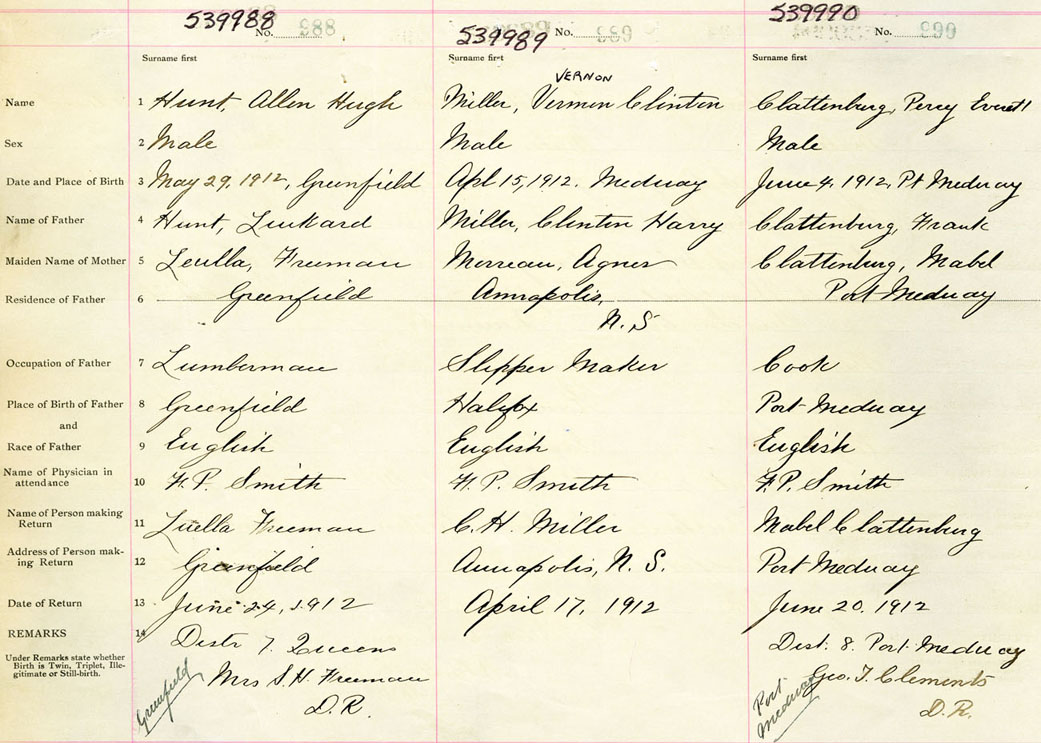 539988 539989 539990
No. 988 No. 989 No. 990
Surname first Surname first Surname first
VERNON
Name 1 Hunt, Allen Hugh Miller, Vermon Clinton Clattenburg, Percy Everett
Sex 2 Male Male Male
Date and Place of Birth 3 May 29, 1912, Greenfield Apl 15, 1912. Medway June 4, 1912, Pt Medway
Name of Father 4 Hunt, Linkard Miller, Clinton Harry Clattenburg, Frank
Maiden Name of Mother 5 Leulla, Freeman Morreau, Agnes Clattenburg, Mabel
Residence of Father 6 Greenfield Annapolis, Port Medway
N. S
Occupation of Father 7 Lumberman Slipper Maker Cook
Place of Birth of Father 8 Greenfield Halifax Port Medway
and
Race of Father 9 English English English
Name of Physician in
attendance 10 F. P. Smith F. P. Smith F. P. Smith
Name of Person making
Return 11 Luella Freeman C. H. Miller Mabel Clattenburg
Address of Person mak-
ing Return 12 Greenfield Annapolis, N. S. Port Medway
Date of Return 13 June 24, 1912 April 17, 1912 June 20. 1912
REMARKS 14 Distr 7. Queens Dist. 8. Port Medway
Under Remarks state whether
Birth is Twin, Triplet, Ille-
gitimate or Still-birth.
Greenfield Mrs S. H. Freeman Port Medway Geo. T. Clements
D. R. D. R.